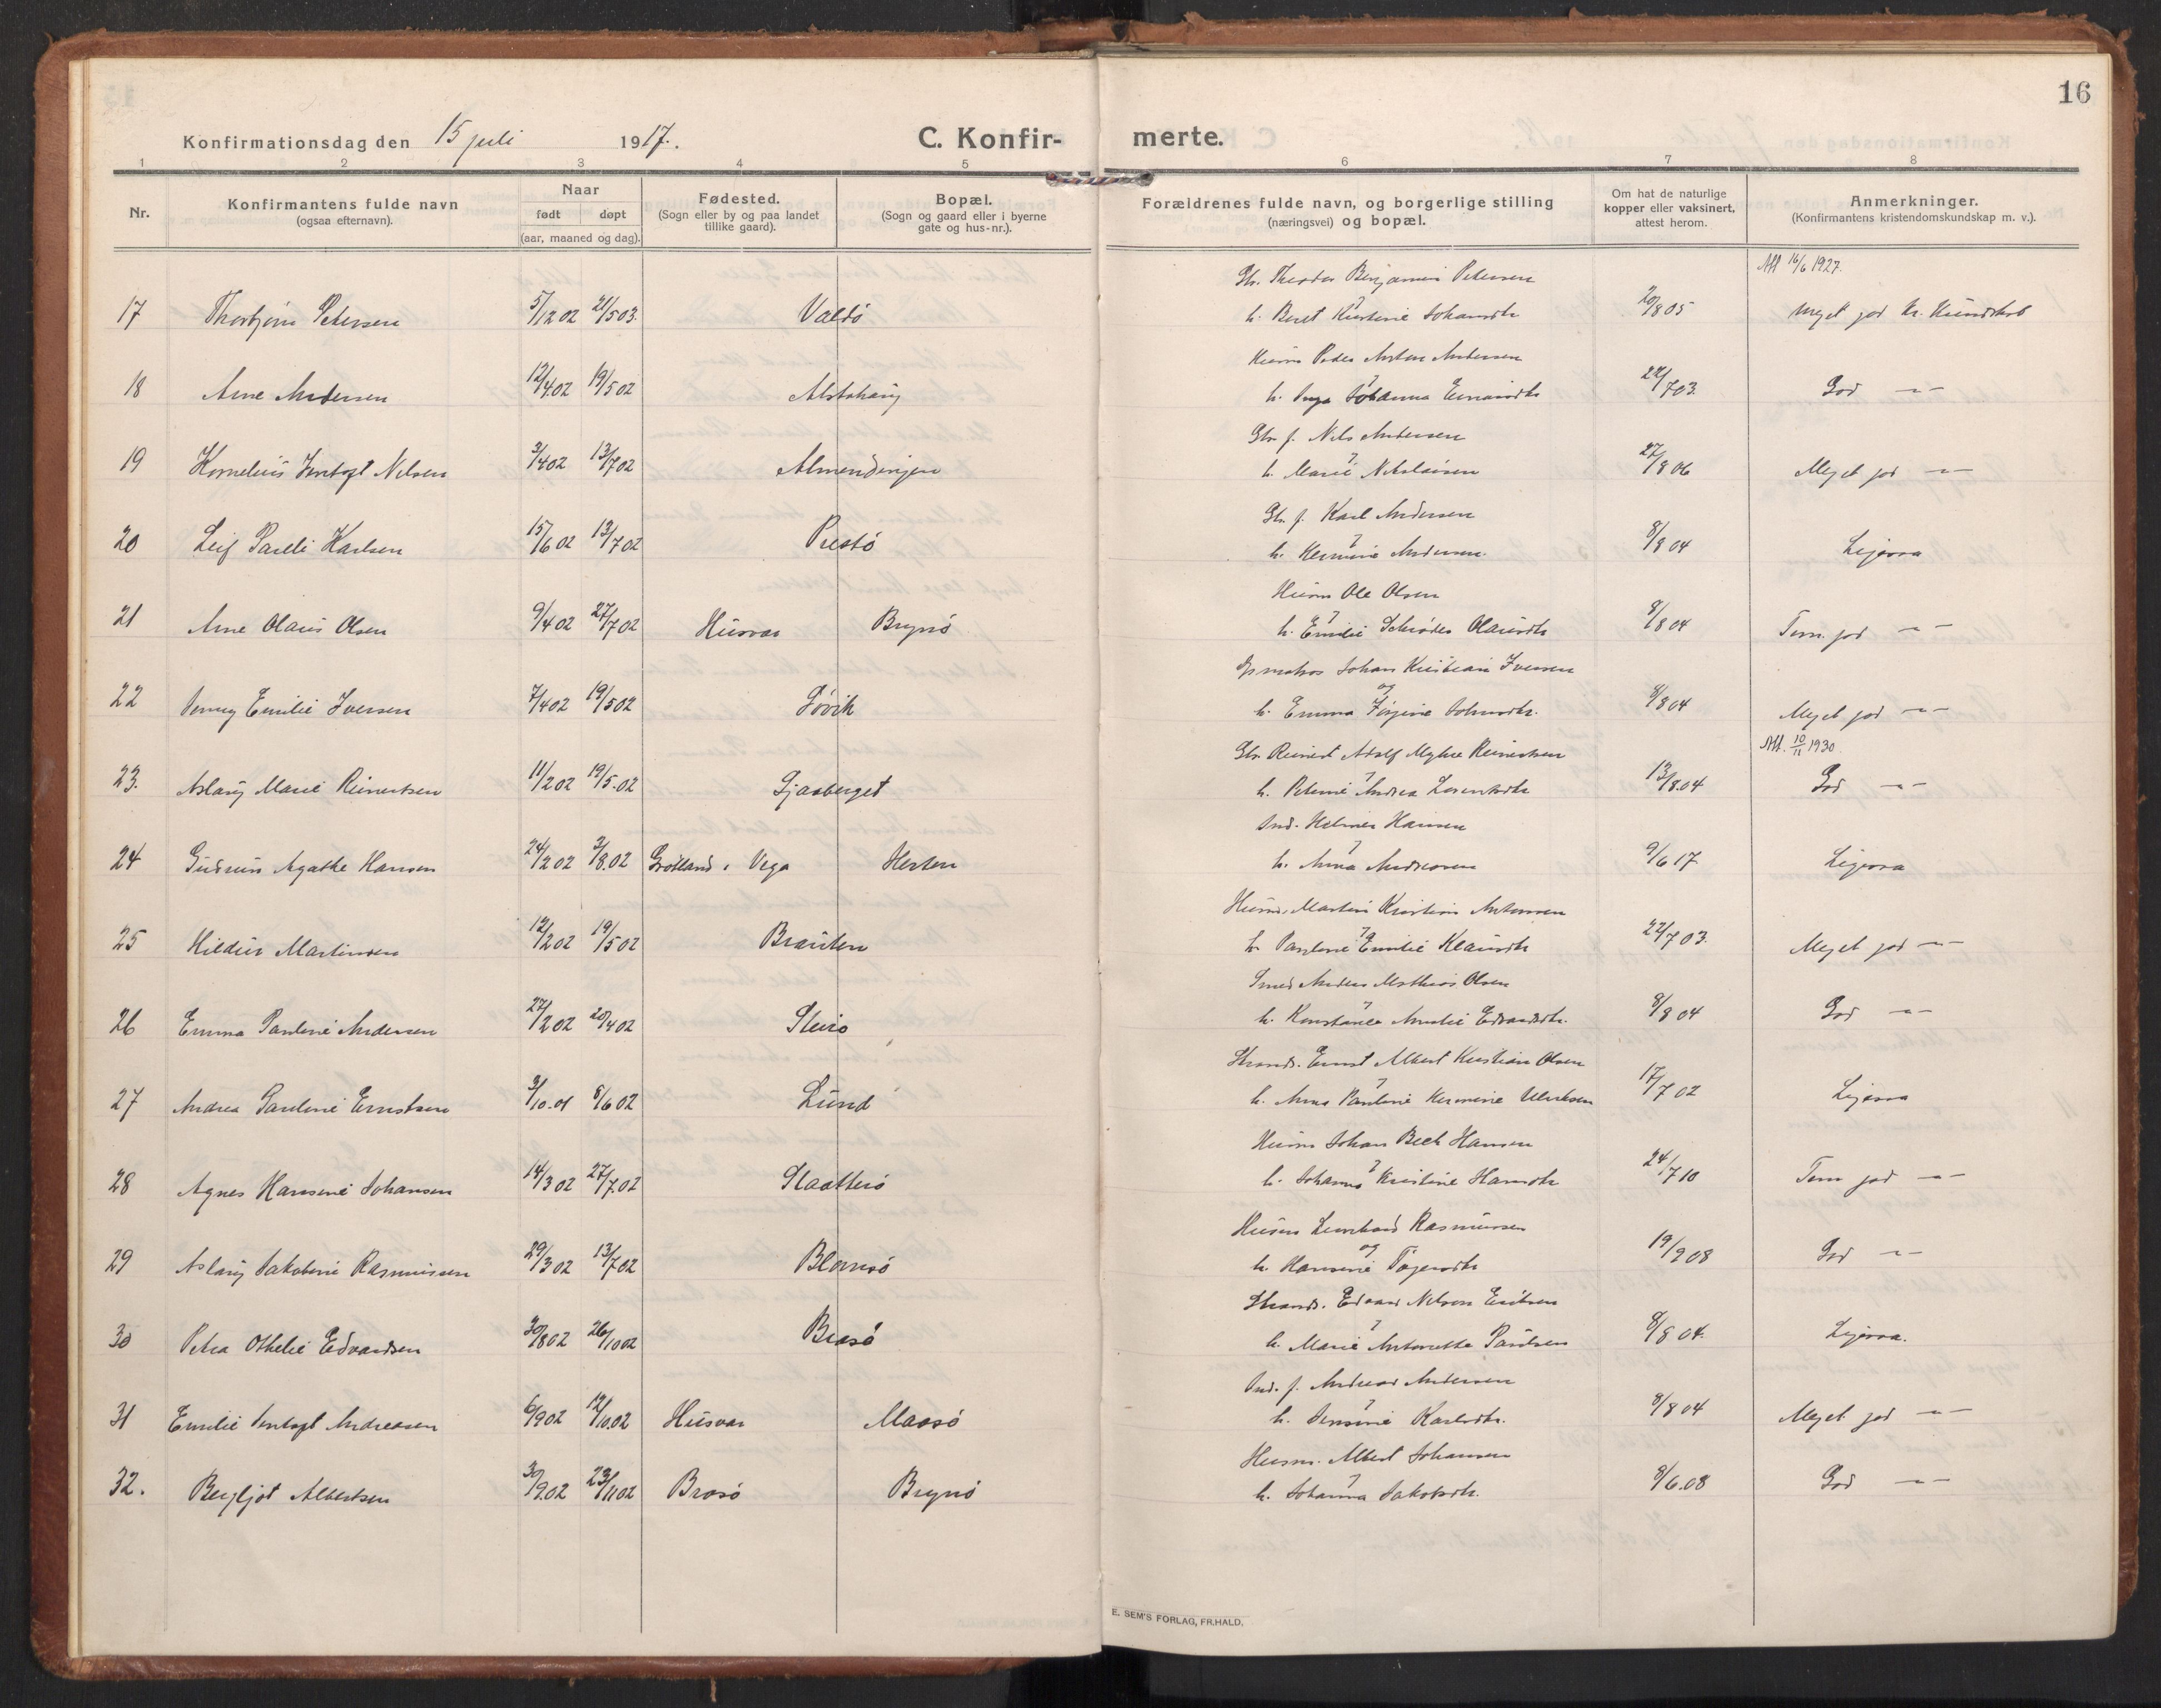 16
Konfirmationsdag den 15 juli 1917.
C. Konfir-
merte.
1 2 3 4 5 6 7 8
Nr.
Konfirmantens fulde navn
(ogsaa efternavn).
Naar
født døpt
(aar, maaned og dag).
Fødested.
(Sogn eller by og paa landet
tillike gaard).
Bopæl.
(Sogn og gaard eller i byerne
gate og hus-nr.).
Forældrenes fulde navn, og borgerlige stilling
(næringsvei) og bopæl.
Om hat de naturlige
kopper eller vaksinert,
attest herom.
Anmerkninger.
(Konfirmantens kristendomskundskap m. v.).
Gbr. Theodor Benjamin Petersen Att 16/6 1927.
17 Thorbjørn Petersen 5/12 02 21/5 03. Valdø h. Beret Kristine Johansdtr 20/8 05 Meget god Kr. Kundskab
Husm Peder Anton Andersen
18 Arne Andersen 12/4 02 19/5 02 Alstahaug h. Inga Johanna 22/7 03. God — " —
Gbr. f. Nils Andersen
19 Kornelius Jentoft Nilsen 3/4 02 13/7 02 Almendingen h. Marie Nikolaisen 27/8 06 Meget god — " —
Gbr. f. Karl Andersen
20 Leif Pareli Karlsen 15/6 02 13/7 02 Prestø h. Hermine Andersen. 8/8 04 Ligesaa
Husm Ole Olsen
21 Arne Olaus Olsen 9/4 02 27/7 02 Husvær Brynø h. Emilie Schrøder Olausdtr 8/8 04 Tem. god — " —
Johan Kristian Iversen
22 Jenny Emilie Iversen 7/4 02 19/5 02 Søvik og h. Emma Jørgine Johnsdtr. 8/8 04 Meget god — " —
Gbr. Reinert Adolf Myhre Reinertsen Att. 10/11 1930.
23. Aslaug Marie Reinertsen 11/2 02 19/5. 02 Gjæsberget h. Petrine Andrea Lorentsdtr 13/8. 04 God — " —
Ind. Helmer Hansen
24 Gudrun Agathe Hansen 24/2 02 3/8. 02 Grøtland i Vega Herten h. Anna Andreasen 9/6 17 Ligesaa
Husm. Martin Kristian Antonsen
25 Hildur Martinsen 12/2 02 19/5 02 Brasten h. Pauline Emilie Klausdtr 22/7 03. Meget god — " —
Smed Anders Mathias Olsen
26 Emma Pauline Andersen 27/2 02 20/4 02 Steirø h. Konstance Amalie Edvardsdtr. 8/8 04 God — " —
Strands. Ernst Albert Kristian Olsen
27 Andrea Pauline Ernstsen 3/10. 01 8/6 02 Lund h. Anna Pauline Hermine Ulriksen 17/7 02 Ligesaa
Husm Johan Beck Hansen
28 Agnes Hansine Johansen 14/3 02 27/7. 02 Slaatterø h. Johanna Kristine Hansdtr 24/7 10 Tem god — " —
Husm Leonhard Rasmussen
29 Aslaug Jakobine Rasmussen 29/3 02 13/7 02 Blomsø og h. Hansine Tøgersdtr 19/9 08 God — " —
Strands. Edvard Nilsen Eriksen
30 Petra Othelie Edvardsen 30/8 02 26/10 02 Brasø h. Marie Antonette Paulsen 8/8 04. Ligesaa.
Ind. f. Andreas Andersen
31 Emilie Jentoft Andreasen 6/9 02 12/10. 02 Husvær Maasø h. Jensine Karlsdtr. 8/8 04 Meget god — " —
Husm. Albert Johansen
32. Bergljot Albertsen 30/9. 02 23/11 02 Brasø Brynø h. Johanna Jakobsdtr. 8/6. 08 God — " —
E. SEM'S FORLAG, FR.HALD.